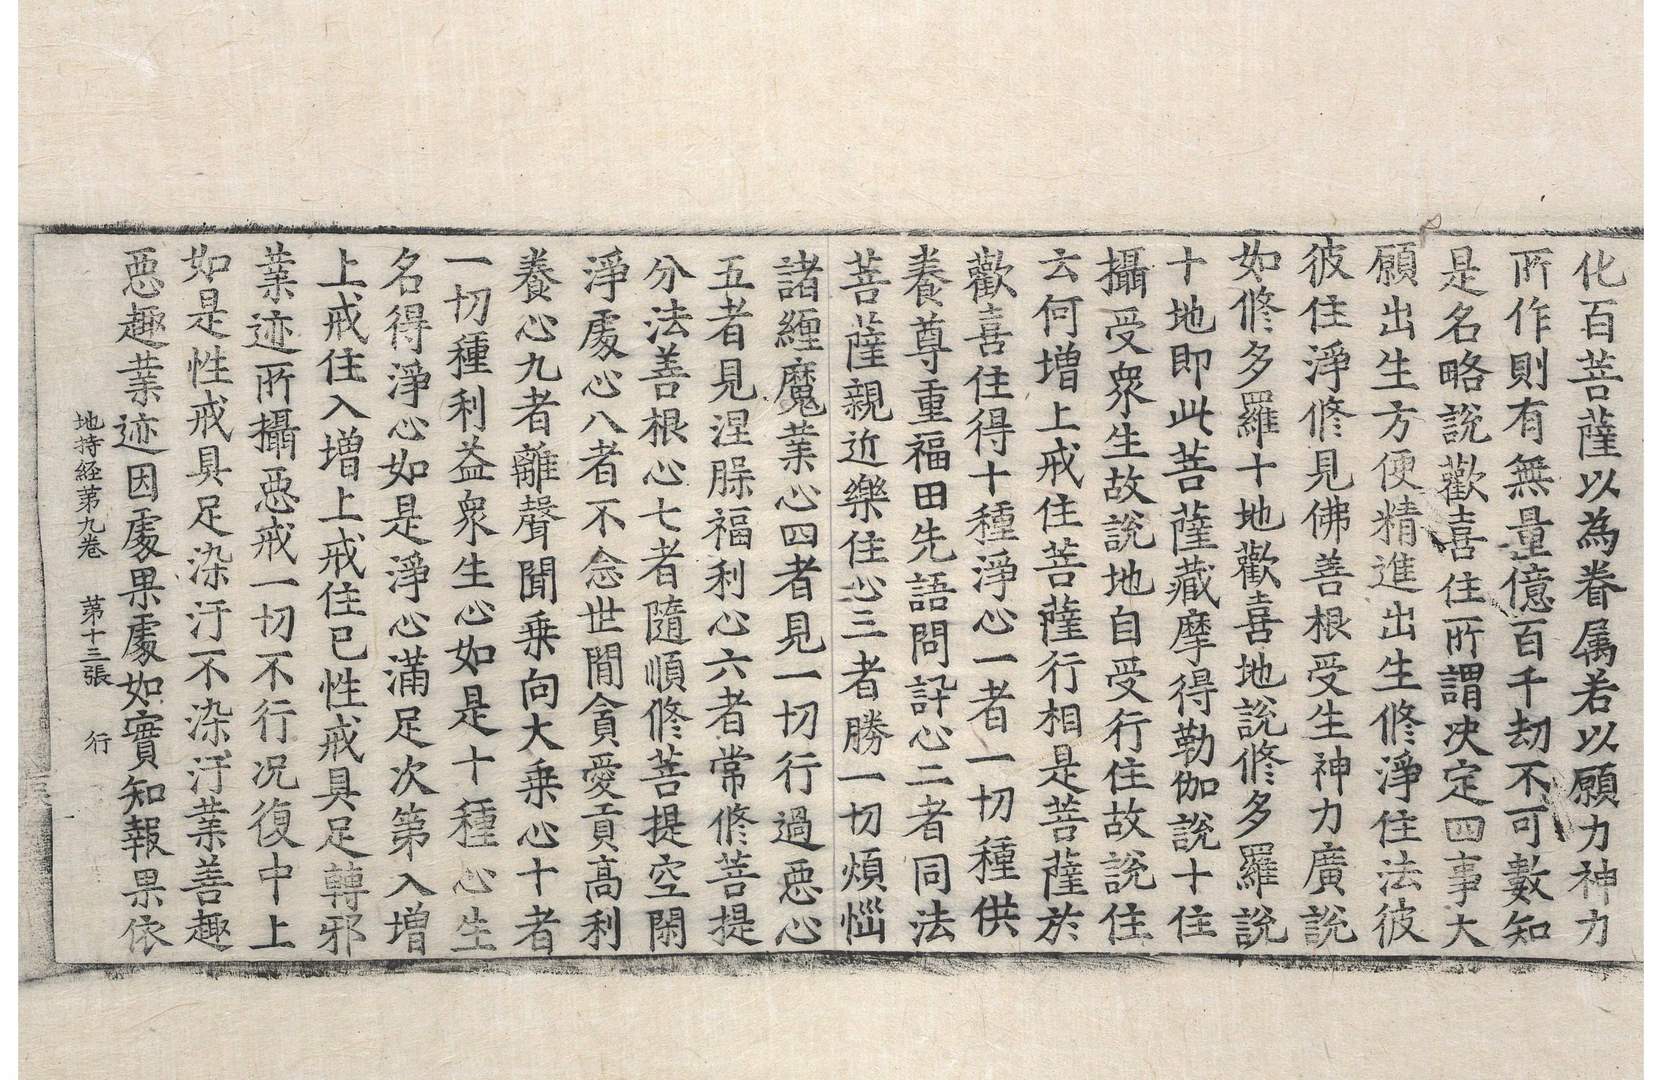 化百菩薩以為眷属若以願力神力
所作則有無量億百千劫不可數知
是名略說歡喜住所謂决定四事大
願出生方便精進出生修淨住法彼
彼住淨修見佛善根受生神力廣說
如修多羅十地歡喜地說修多羅說
十地即此菩薩藏摩得勒伽說十住
攝受衆生故說地自受行住故說住
云何増上戒住菩薩行相是菩薩於
歡喜住得十種淨心一者一切種供
養尊重福田先語問訊心二者同法
菩薩親近樂住心三者勝一切煩惱
諸纏魔業心四者見一切行過惡心
五者見涅槃福利心六者常修菩提
分法善根心七者隨順修菩提空閑
淨處心八者不念世間貪愛貢高利
養心九者離聲聞乗向大乗心十者
一切種利益衆生心如是十種心生
名得淨心如是淨心滿足次第入增
上戒住入增上戒住已性戒具足轉邪
業迹所攝惡戒一切不行况復中上
如是性戒具足染汙不染汙業善趣
惡趣業迹因處果處如實知報果依
地持経第九卷　第十三張　行